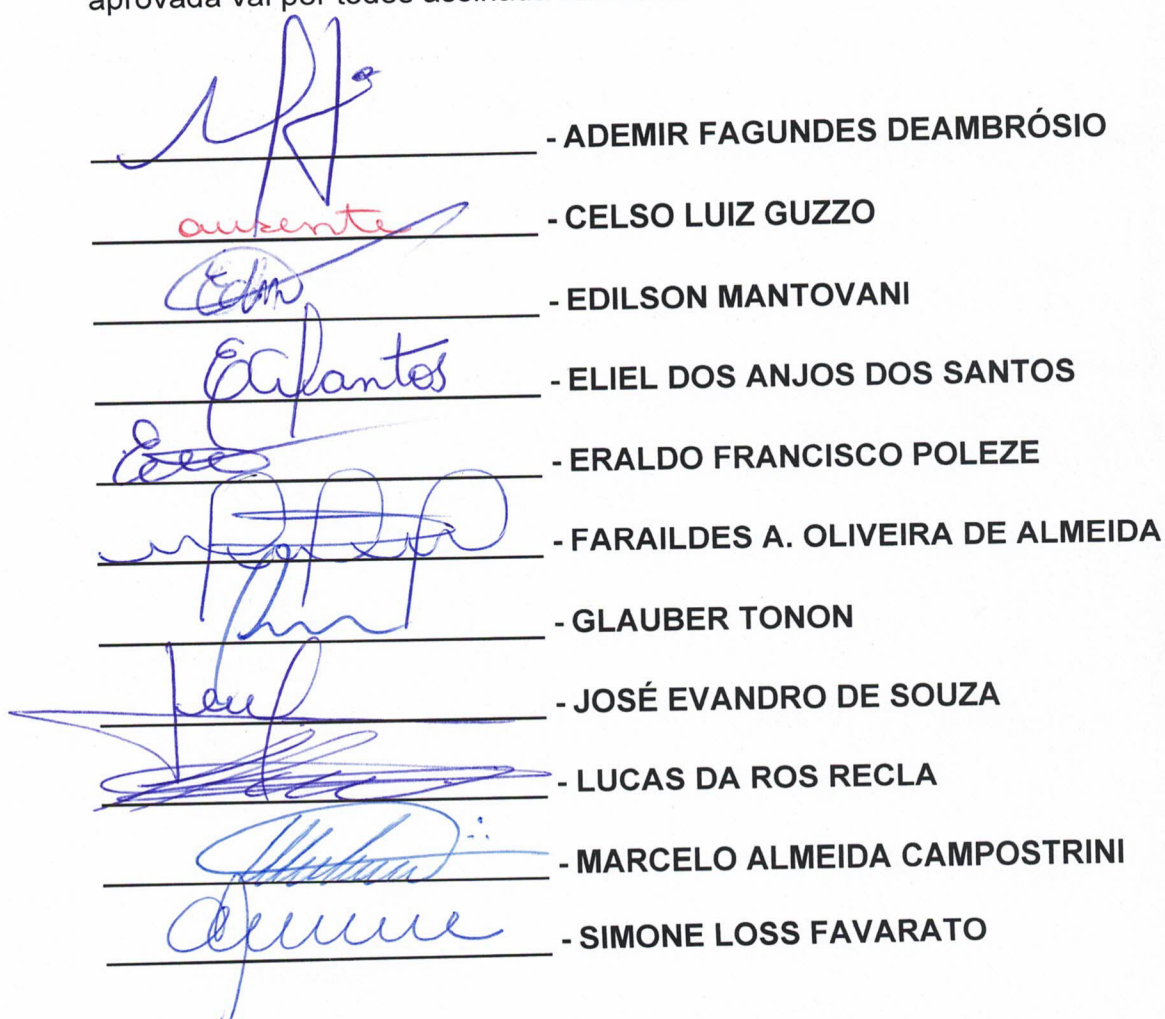 aprovada vai por todos
- ADEMIR FAGUNDES DEAMBRÓSIO
ausente - CELSO LUIZ GUZZO
- EDILSON MANTOVANI
- ELIEL DOS ANJOS DOS SANTOS
- ERALDO FRANCISCO POLEZE
- FARAILDES A. OLIVEIRA DE ALMEIDA
- GLAUBER TONON
- JOSÉ EVANDRO DE SOUZA
- LUCAS DA ROS RECLA
- MARCELO ALMEIDA CAMPOSTRINI
- SIMONE LOSS FAVARATO